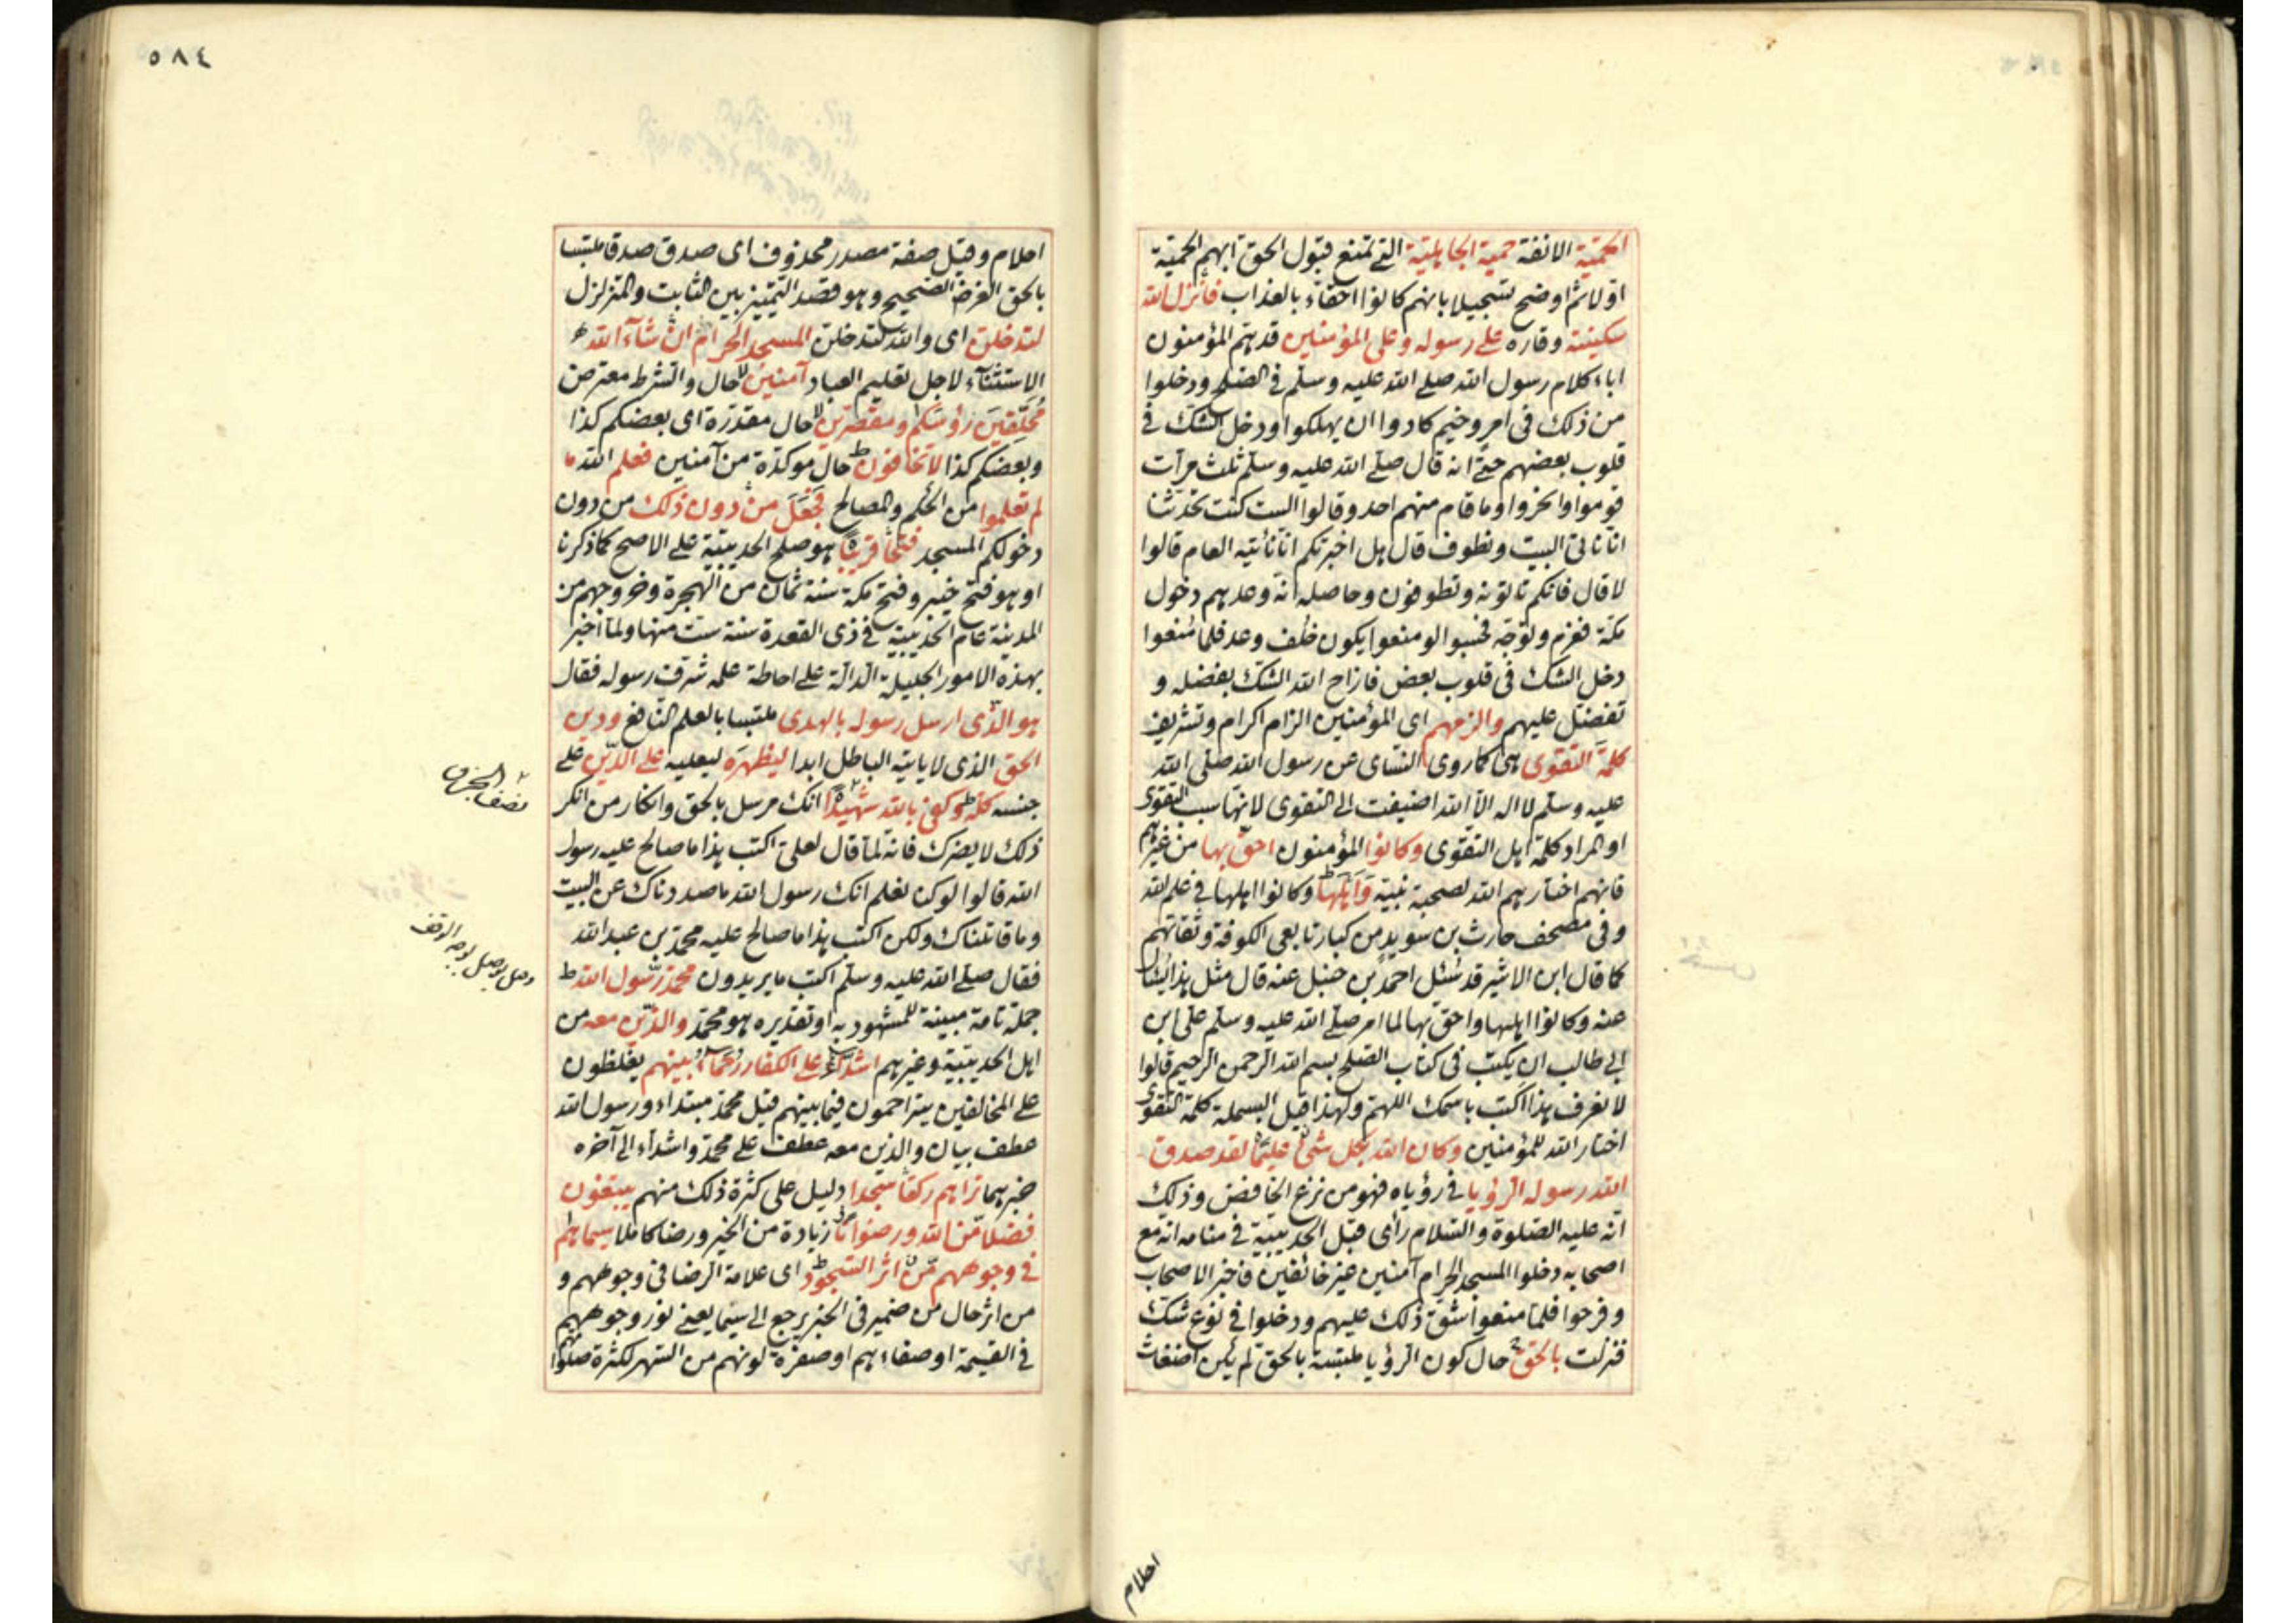 الحمية الانفة حمية الجاهلية التي تمنع قبول الحق ابهم الحمية
اولا ثم اوضح تسجيلا بانهم كانوا احقاء بالعذاب فانزل الله
سكينته وقاره على رسوله وعلى المؤمنين قد هم المؤمنون
اباء كلام رسول الله صلى الله عليه وسلم في الصلح ودخلوا
من ذلك في امر وخيم كادوا ان يهلكوا ودخل الشك في
قلوب بعضهم حتى انه قال صلى الله عليه وسلم ثلث مرات
قوموا وانحروا وما قام منهم احد وقالوا الست كنت تحدثنا
انا ناتي البيت ونطوف قال هل اخبرتكم انا ناتيه العام قالوا
لا قال فانكم تاتونه وتطوفون وحاصله انه وعدهم دخول
مكة فعزم وتوجه فحسبوا لو منعوا يكون خلف وعد فلما منعوا
دخل الشك في قلوب بعض فازاح الله الشك بفضله و
تفضل عليهم والزمهم اى المؤمنين الزام اكرام وتشريف
كلمة التقوى هى كما روى النساى عن رسول الله صلى الله
عليه وسلم لا اله الا الله اضيفت الى التقوى لانها سبب التقوى
او المراد كلمة اهل التقوى وكانوا المؤمنون احق بها من غيرهم
فانهم اختارهم الله لصحبة نبيه واهلها وكانوا اهلها في علم الله
وفى مصحف حارث بن سويد من كبار تابعى الكوفة وثقاتهم
كما قال ابن الاثير قد سئل احمد بن حنبل عنه قال مثل هذا يسال
عنه وكانوا اهلها واحق بها لما امر صلى الله عليه وسلم على ابن
ابي طالب ان يكتب فى كتاب الصلح بسم الله الرحمن الرحيم قالوا
لا نعرف هذا اكتب باسمك اللهم ولهذا قيل البسملة كلمة التقوى
اختار الله للمؤمنين وكان الله بكل شئ عليما لقد صدق
الله رسوله الرؤيا في رؤياه فهو من نزع الخافض وذلك
انه عليه الصلوة والسلام رأى قبل الحديبية في منامه انه مع
اصحابه دخلوا المسجد الحرام آمنين غير خائفين فاخبر الاصحاب
وفرحوا فلما منعوا شق ذلك عليهم ودخلوا في نوع شك
فنزلت بالحق حال كون الرؤيا ملتبسة بالحق لم يكن اضغاث
احلام
٥٨٤
احلام وقيل صفة مصدر محذوف اى صدق صدقا ملتبسا
بالحق الغرض الصحيح وهو قصد التمييز بين الثابت والمتزلزل
لتدخلن اى والله لتدخلن المسجد الحرام ان شاء الله
الاستثناء لاجل تعليم العباد آمنين حال والشرط معترض
محلقين رؤسكم ومقصرين حال مقدرة اى بعضكم كذا
وبعضكم كذا لا تخافون حال موكدة من آمنين فعلم الله ما
لم تعلموا من الحكم والمصالح فجعل من دون ذلك من دون
دخولكم المسجد فتحا قريبا هو صلح الحديبية على الاصح كما ذكرنا
او هو فتح خيبر وفتح مكة سنة ثمان من الهجرة وخروجهم من
المدينة عام الحديبية في ذى القعدة سنة ست منها ولما اخبر
بهذه الامور الجليلة الدالة على احاطة علمه شرف رسوله فقال
هو الذى ارسل رسوله بالهدى ملتبسا بالعلم النافع ودين
الحق الذى لا ياتيه الباطل ابدا ليظهره ليعليه على الدين على
جنسه كله وكفى بالله شهيدا انك مرسل بالحق وانكار من انكر
ذلك لا يضرك فانه لما قال لعلى اكتب هذا ما صالح عليه رسول
الله قالوا لو كنا نعلم انك رسول الله ما صددناك عن البيت
وما قاتلناك ولكن اكتب هذا ما صالح عليه محمد بن عبد الله
فقال صلى الله عليه وسلم اكتب ما يريدون محمد رسول الله ط
جملة تامة مبينة للمشهود به او تقديره هو محمد والذين معه من
اهل الحديبية وغيرهم اشداء على الكفار رحماء بينهم يغلظون
على المخالفين يتراحمون فيما بينهم قيل محمد مبتداء ورسول الله
عطف بيان والذين معه عطف على محمد واشداء الى آخره
خبرهما تراهم ركعا سجدا دليل على كثرة ذلك منهم يبتغون
فضلا من الله ورضوانا زيادة من الخير ورضا كاملا سيماهم
في وجوههم من اثر السجود اى علامة الرضا فى وجوههم و
من اثر حال من ضمير فى الخبر يرجع الى سيما يعنى نور وجوههم
في القيمة او صفاءهم او صفرة لونهم من السهر لكثرة صلوتهم
نصف الحزب